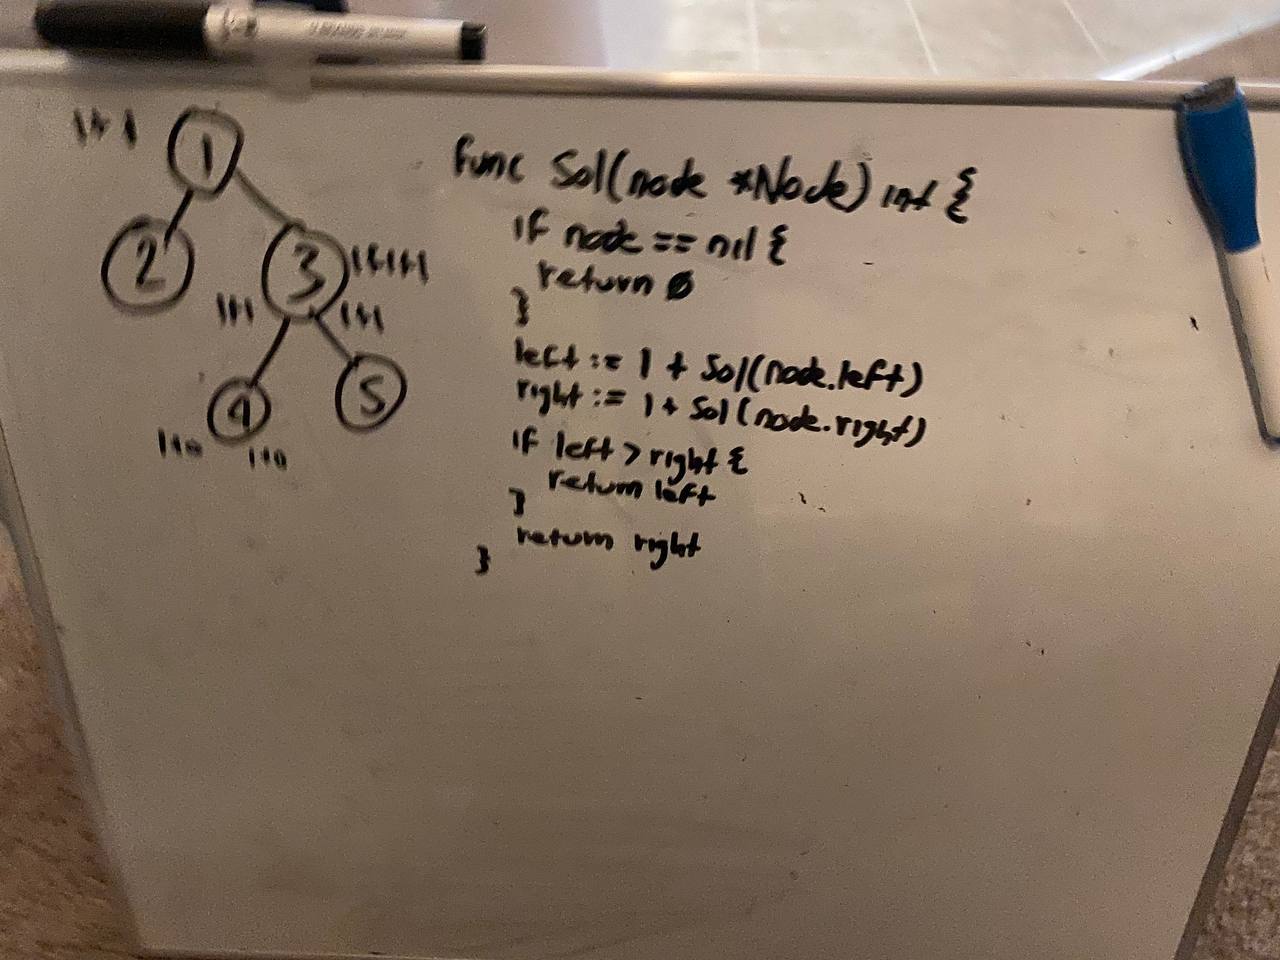 1+1
1
2
3
1+1+1
1+1
1+1
4
5
1+0
1+0
func Sol(node *Node) int {
if node == nil {
return 0
}
left := 1 + Sol(node.left)
right := 1 + Sol(node.right)
if left > right {
return left
}
return right
}